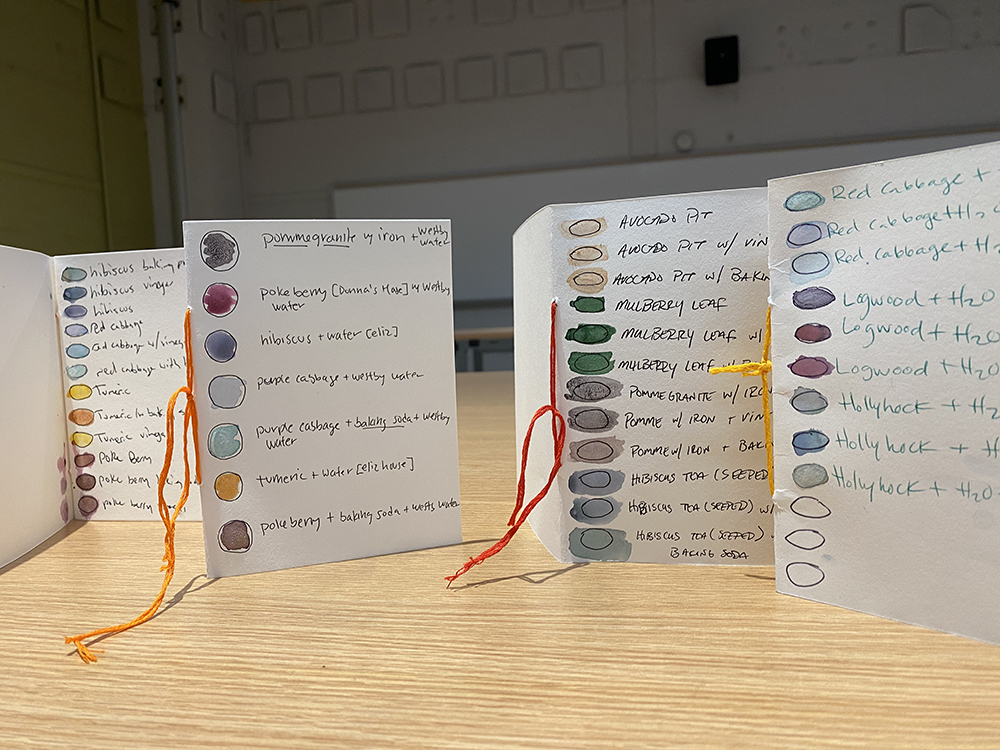 hibiscus baking
hibiscus vinegar
hibiscus
Red cabbage
red cabbage w/vinegar
red cabbage with
Tumeric
Tumeric w bak
Tumeric vinegar
Poke Berry
poke berry baking
poke berry
pommegranite w iron + westby
water
poke berry [Donna's Hose] w westby
water
hibiscus + water [eliz]
purple cabbage + westby water
purple cabbage + baking soda + westby
water
tumeric + water [eliz house]
pokeberry + baking soda + wests water
AVOCADO PIT
AVOCADO PIT W/ VIN
AVOCADO PIT W/ BAKIN
MULBERRY LEAF
MULBERRY LEAF W/
MULBERRY LEAF
POMMEGRANITE W/ IRO
POMME W/ IRON + VINT
POMME W/ IRON + BAKIN
HIBISCUS TEA (SEEPED)
HIBISCUS TEA (SEEPED) W/
HIBISCUS TEA (SEEPED)
BAKING SODA
Red Cabbage +
Red Cabbage + H2
Red. Cabbage + H2
Logwood + H2O
Logwood + H2O
Logwood + H2O
Hollyhock + H2
Hollyhock + H
Hollyhock + H2O